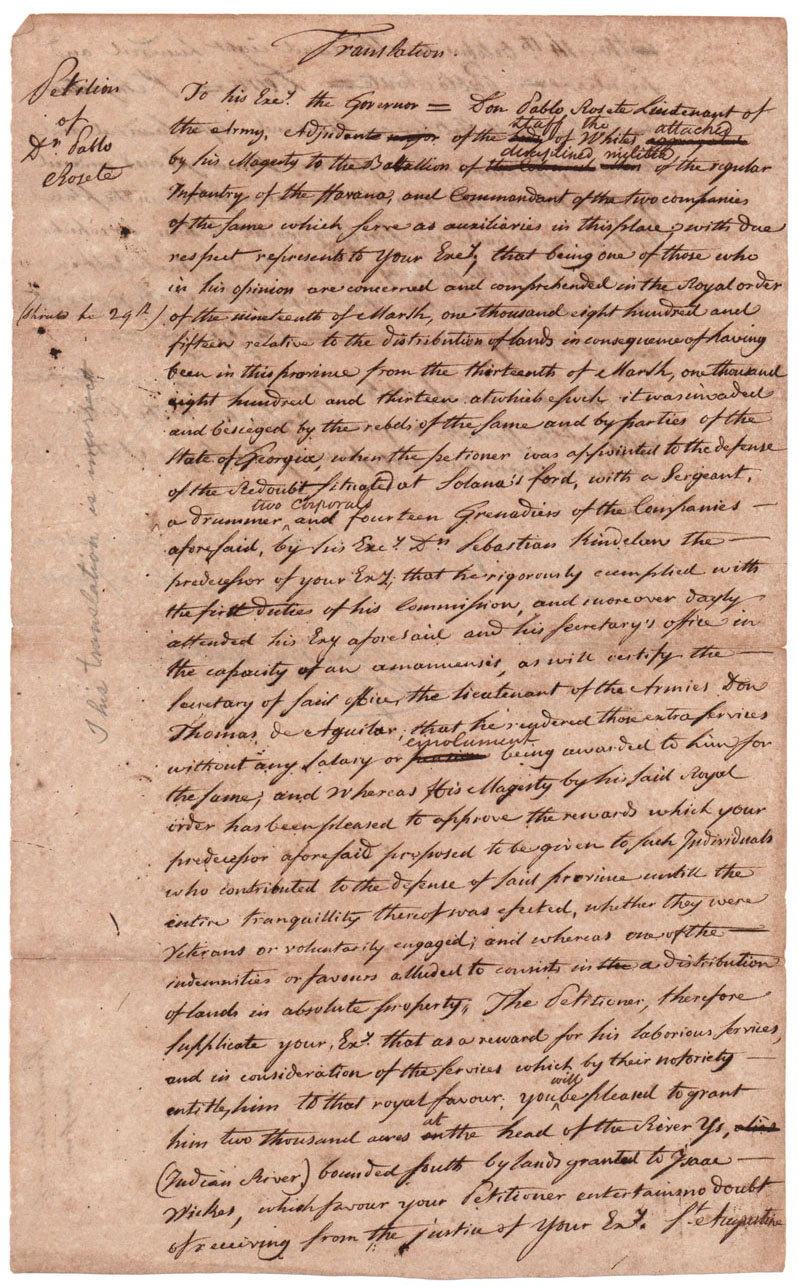 Translation.
Petition
of
Dn Pablo
Rosete
To his Exy. the Governor = Don Pablo Rosete Lieutenant of
staff the attached
the Army, Adjudant major of the body of Whites
disciplined militia
by his Magesty to the Battallion of of the regular
Infantry of the Havana, and Commandant of the two companies
of the same which serve as auxiliaries in this place; with due
respect represents to Your Exy, that being one of those who
in his opinion are concerned and comprehended in the Royal order
(should be 29th) of the nineteenth of Marsh, one thousand eight hundred and
fifteen relative to the distribution of lands in consequence of having
been in this province from the thirteenth of Marsh, one thousand
eight hundred and thirteen at which epoch it was invaded
and besieged by the rebels of the same and by parties of the
State of Georgia, when the petioner was appointed to the defense
of the Redoubt situated at Solana's ford, with a Sergeant,
two corporals
a drummer, and fourteen Grenadiers of the Companies —
aforesaid, by his Exey. Dn Sebastian Kindelen the —
predecessor of your Exy; that he rigorously complied with
the first duties of his Commission, and moreover dayly
attended his Exy aforesaid and his Secretary's office in
the capacity of an amanuensis, as will certify the —
Secretary of said office, the lieutenant of the Armies Don
Thomas de Aguilar; that he rendered those extra services
emolument
without any salary or being awarded to him for
the same; and Whereas His Magesty by his said Royal
order has been pleased to approve the rewards which your
predecessor aforesaid proposed to be given to such Individuals
who contributed to the defense of said province untill the
entire tranquillity thereof was efected, whether they were
Veterans or voluntarily engaged; and whereas one of the —
indemnities or favours alluded to consists in the a distribution
of lands in absolute property; The Petitioner, therefore
supplicate your, Exy. that as a reward for his laborious services,
and in consideration of the services which by their notoriety —
will
entitle him to that royal favour; you be pleased to grant
at
him two thousand acres on the head of the River Ys, alias
(Indian River) bounded south by lands granted to Isaac —
Wickes, which favour your Petitioner entertains no doubt
of receiving from the justice of Your Exy. St. Augustine
This translation is incorrect